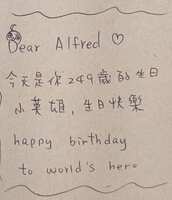 Dear Alfred ♡
今天是你249歲的生日
小英雄，生日快樂
happy birthday
to world's hero